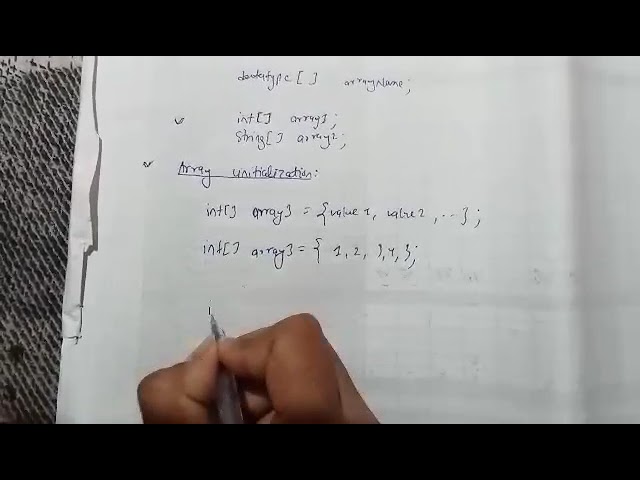 datatype[ ] arrayName;
int[] array1;
String[] array2;
Array initialization:
int[] array3 = {value1, value2, ...};
int[] array3 = { 1, 2, 3, 4, };